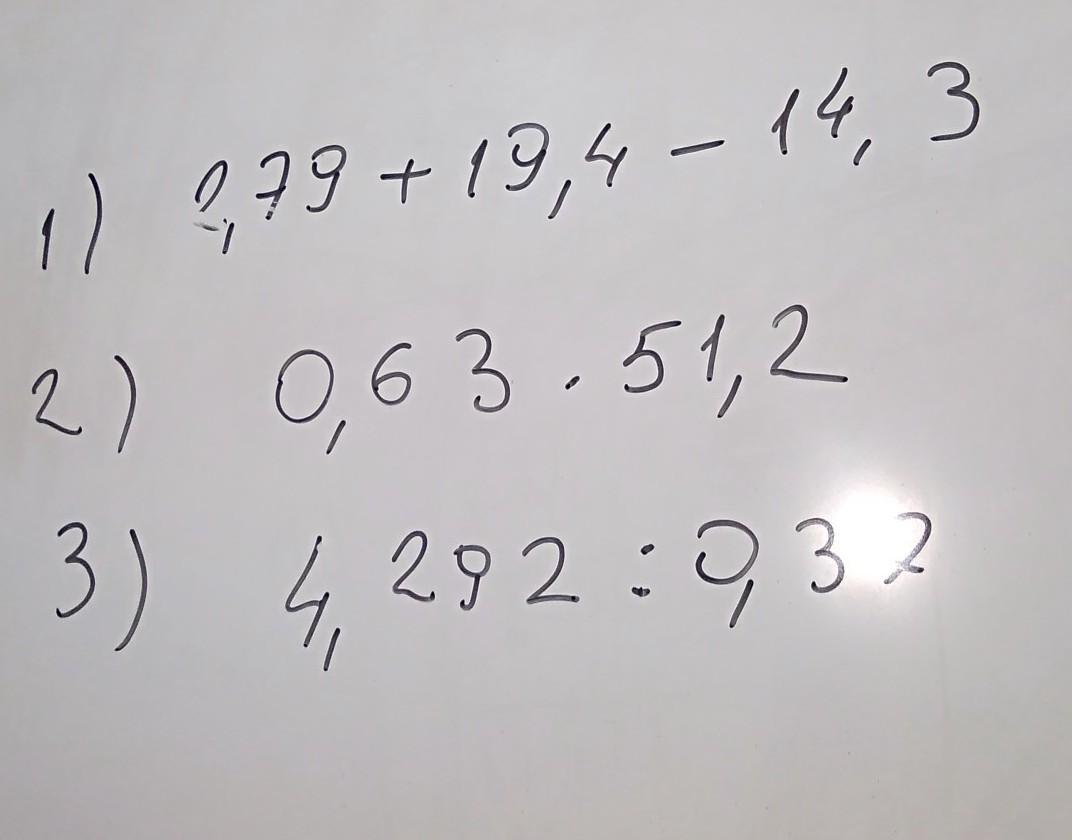 1) 2,79 + 19,4 - 14,3
2) 0,63 . 51,2
3) 4,292 : 0,37